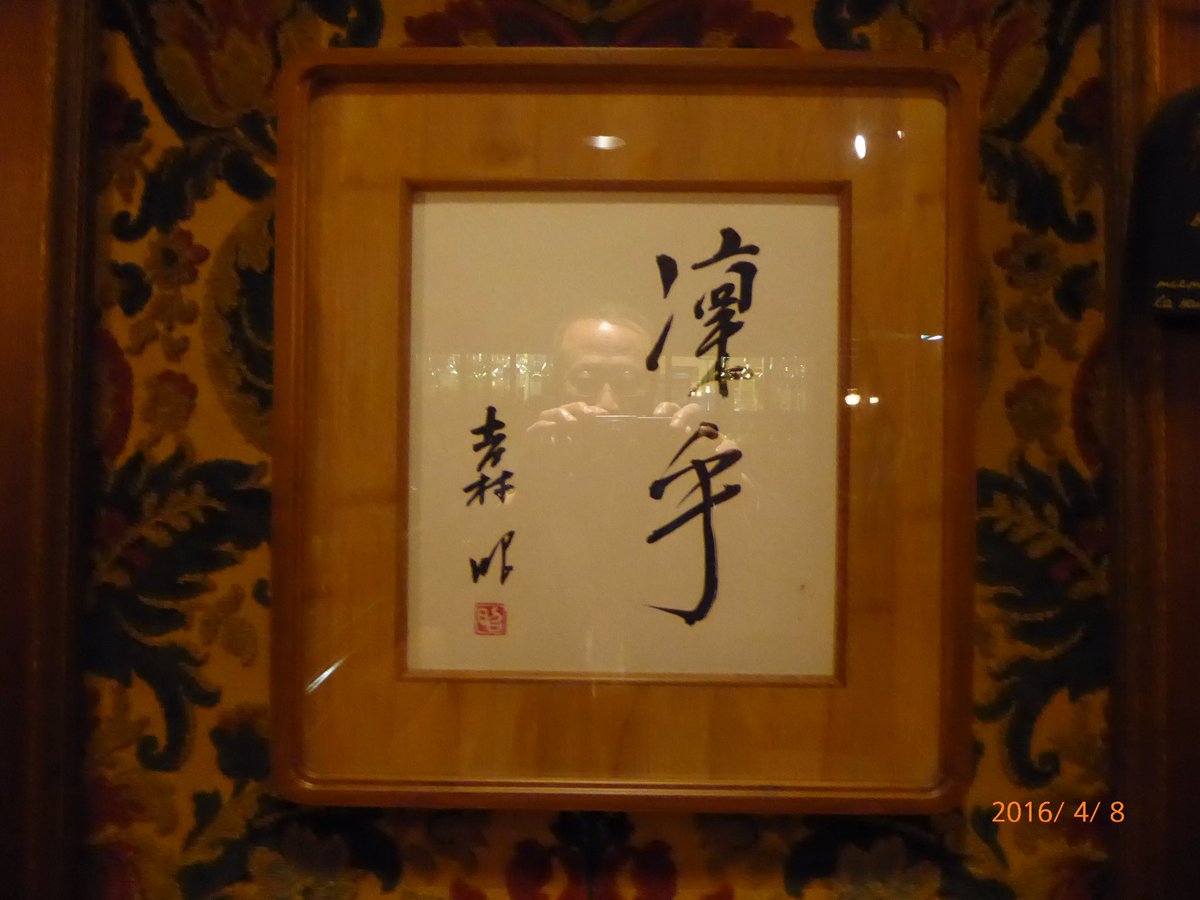 凛乎
吉村 昭
昭
2016/ 4/ 8